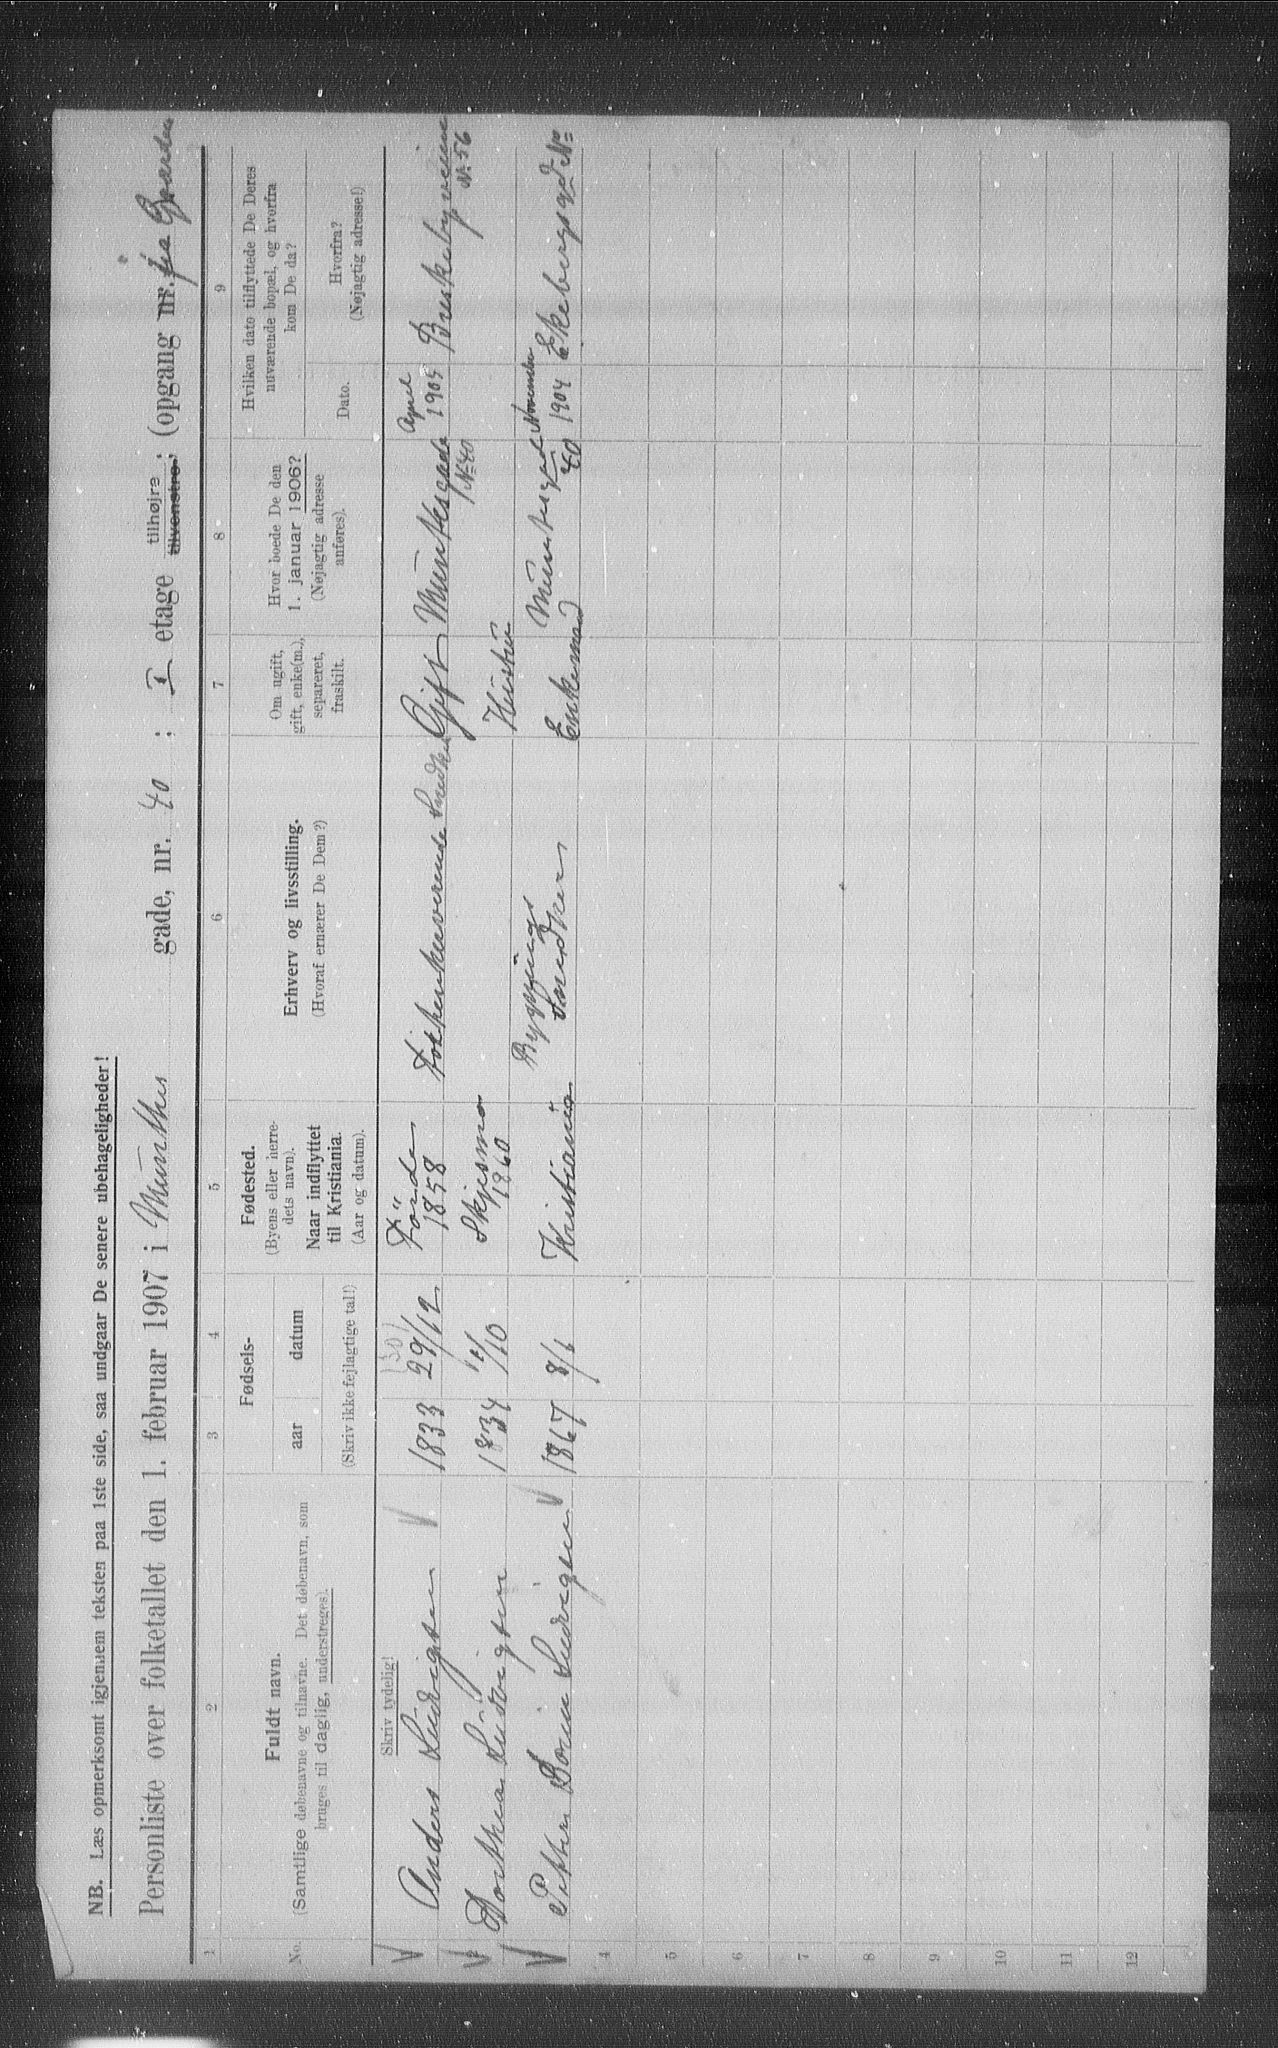 NB. Læs opmerksomt igjennem teksten paa 1ste side, saa undgaar De senere ubehageligheder!
Personliste over folketallet den 1. februar 1907 i Münthes gade, nr. 40 ; I etage tilhøjre tilvenstre; (opgang nr. fra Gaarden
1 2 3 4 5 6 7 8 9
No.
Fuldt navn.
(Samtlige døbenavne og tilnavne. Det døbenavn, som
bruges til daglig, understreges).
Fødsels-
aar datum
(Skriv ikke fejlagtige tal!)
Fødested.
(Byens eller herre-
dets navn).
Naar indflyttet
til Kristiania.
(Aar og datum).
Erhverv og livsstilling.
(Hvoraf ernærer De Dem?)
Om ugift,
gift, enke(m.),
separeret,
fraskilt.
Hvor boede De den
1. januar 1906?
(Nøjagtig adresse
anføres).
Hvilken dato tilflyttede De Deres
nuværende bopæl, og hvorfra
kom De da?
Dato.
Hvorfra?
(Nøjagtig adresse!)
Skriv tydelig!
Anders Ludvigsen 1833 29/12 1858 Snedker Gift Münthesgade No 40 April 1905 Briskebyveien No 56
2 Dorthea Ludvigsen 1834 /10 Skjesmo 1860 Hustru
Petter Ludvigsen 1867 8/6 Kristiania Bygnings Snedker Enkemand Münthesgade 40 November 1904 Ekebergsgd No
4
5
6
7
8
9
10
11
12